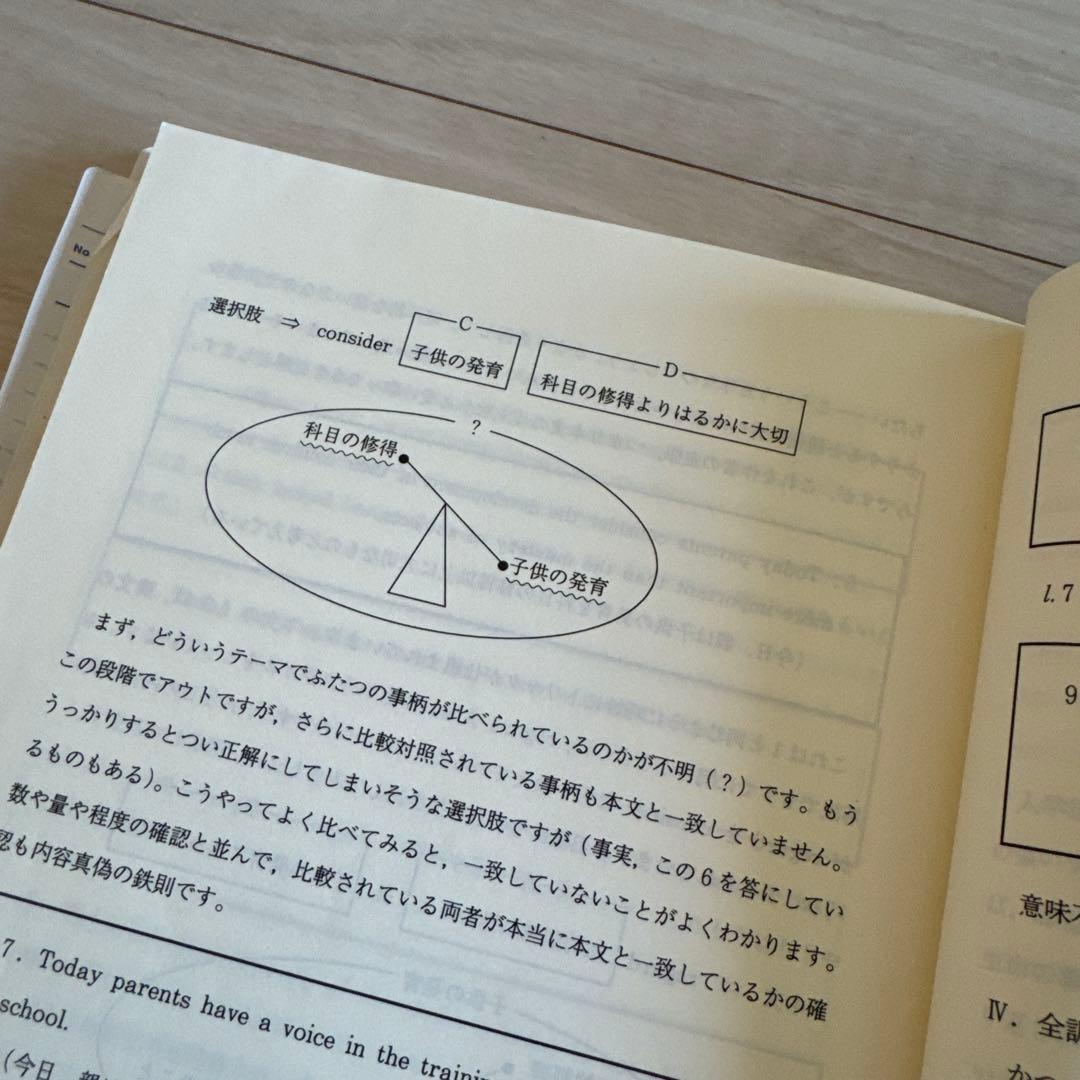 No
選択肢 ⇒ consider
C
子供の発育
D
科目の修得よりはるかに大切
?
科目の修得
子供の発育
まず，どういうテーマでふたつの事柄が比べられているのかが不明（？）です。もう
この段階でアウトですが，さらに比較対照されている事柄も本文と一致していません。
うっかりするとつい正解にしてしまいそうな選択肢ですが（事実，この６を答にしてい
るものもある）。こうやってよく比べてみると，一致していないことがよくわかります。
数や量や程度の確認と並んで，比較されている両者が本当に本文と一致しているかの確
認も内容真偽の鉄則です。
7. Today parents have a voice in the
school.
（今日
l.7
9
意味
Ⅳ．全訳